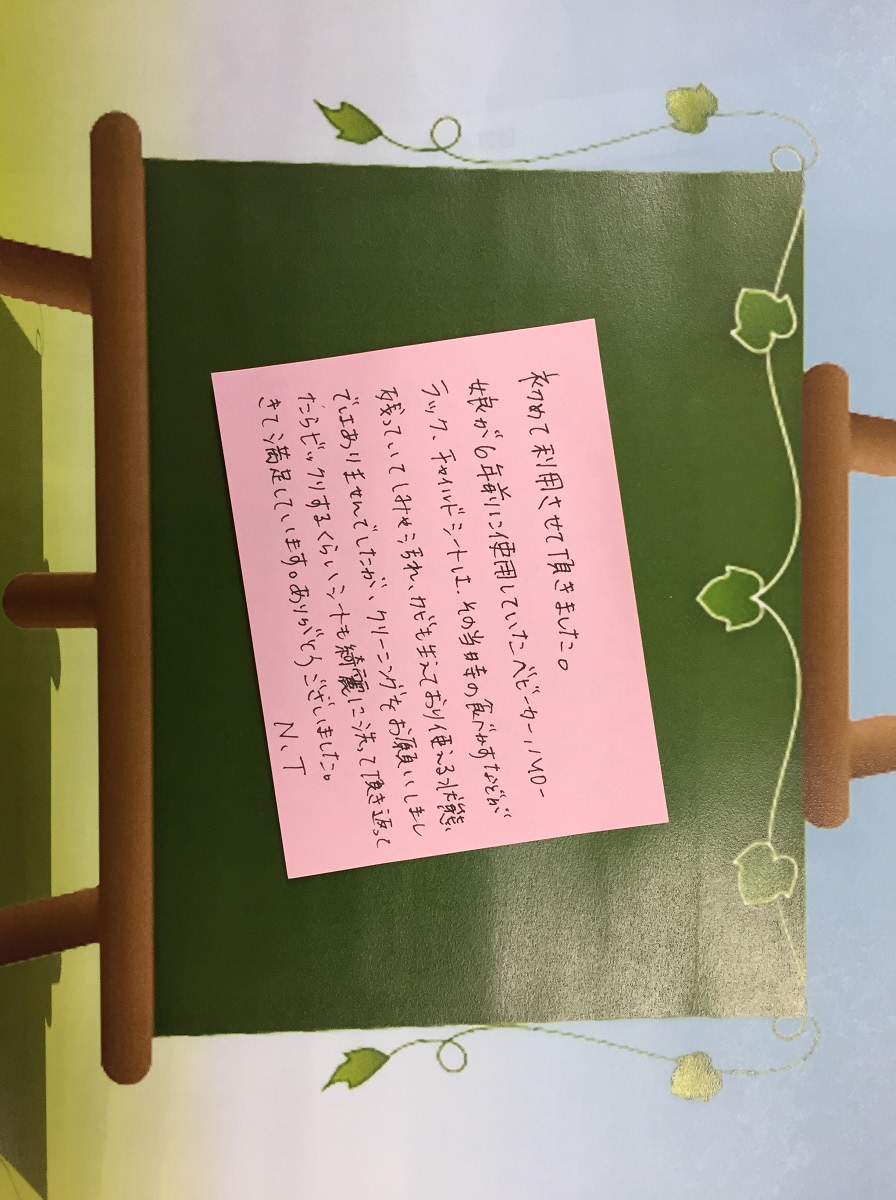 初めて利用させて頂きました。
娘が6年前に使用していたベビーカー、ハイロー
ラック、チャイルドシートは、その当時の食べかすなどが
残っていてしみもつれ、カビも生えており使える状態
ではありませんでしたが、クリーニングをお願いしまし
たらビックリするくらいシートも綺麗に洗って頂き返って
きて満足しています。ありがとうございました。
N.T